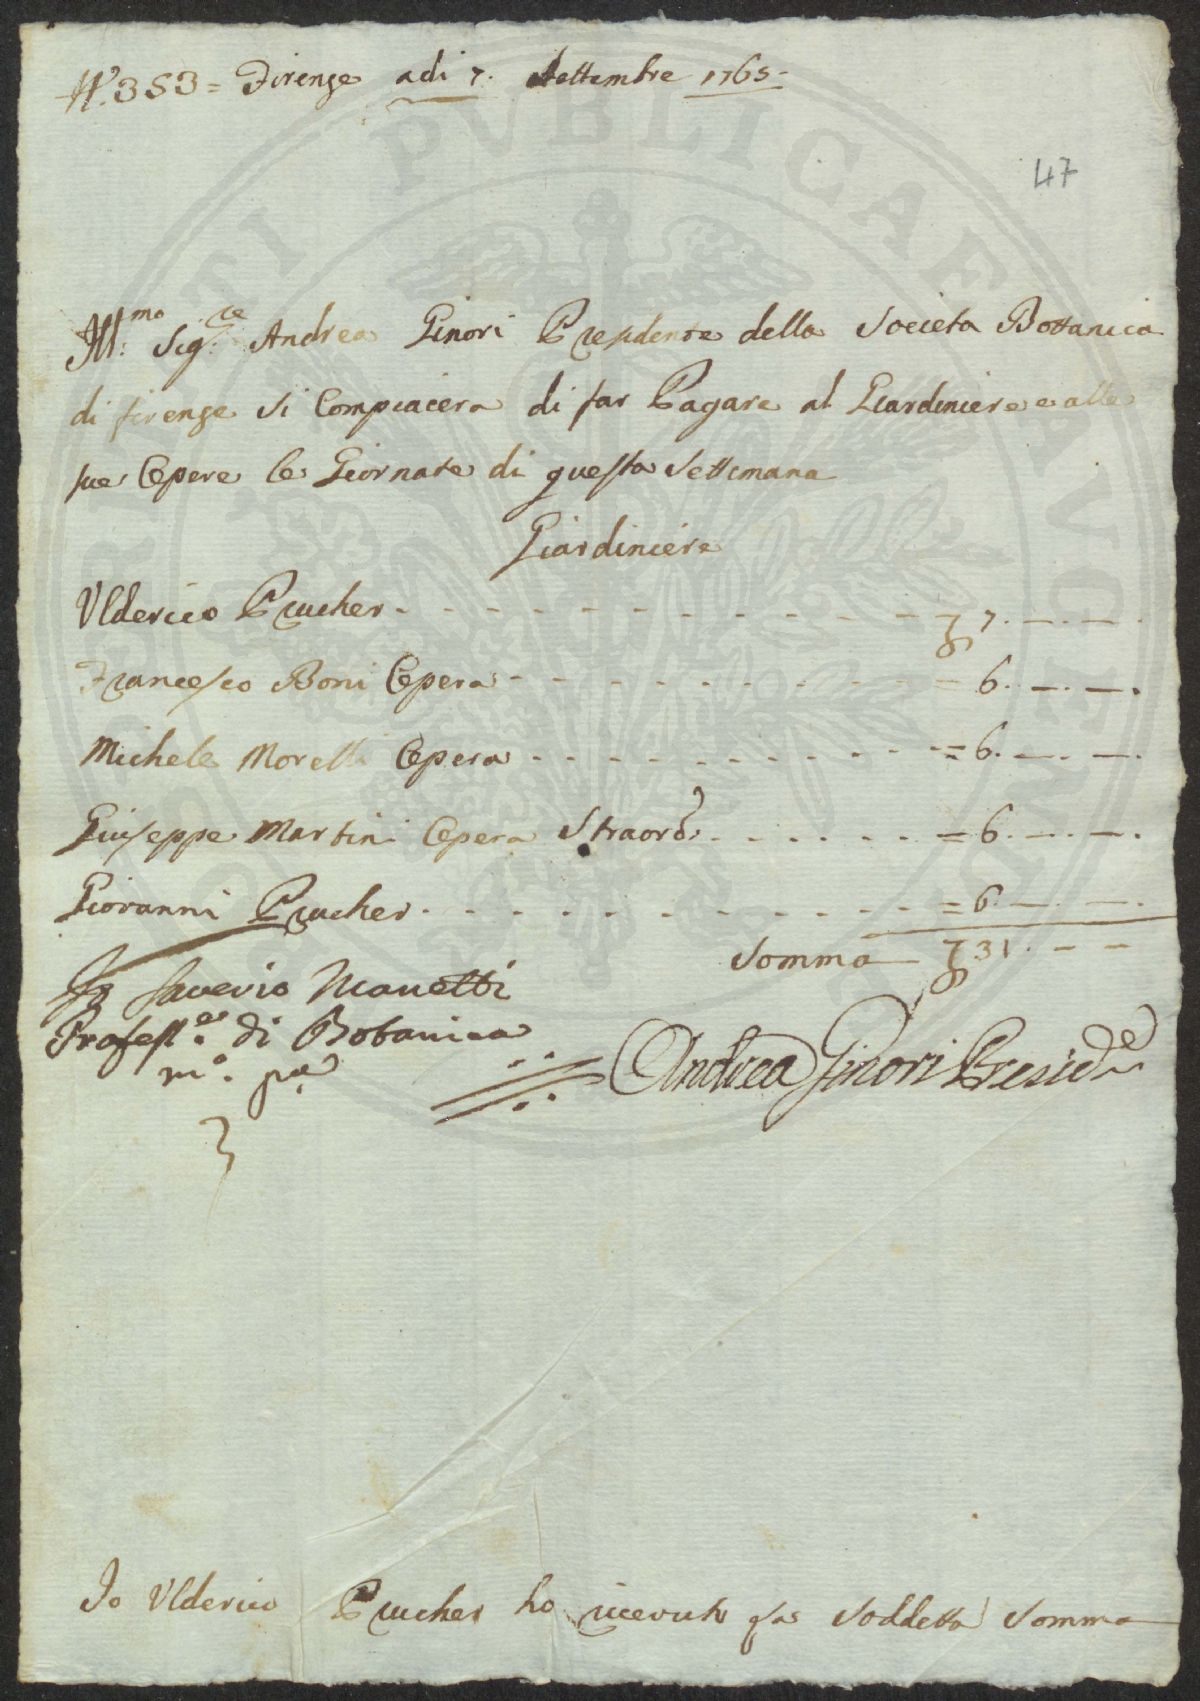 N.° 353 = Firenze adi 7. Settembre 1765 =
47
Ill.mo Sig.re Andrea Ginori Presidente della Societa Bottanica
di firenze si Compiacera di far Pagare al Giardiniere e alle
sue Opere le Giornate di questa Settimana
Giardiniere
Ulderico Prucher - - - - - - - - - - - - - 7. — —.
Francesco Boni Opera - - - - - - - - - - = 6. — —.
Michele Morelli Opera - - - - - - - - - - = 6. — —.
Giuseppe Martini Opera Straord. - - - - - - = 6. — —.
Giovanni Prucher - - - - - - - - - - - - = 6. — —.
Somma 31. — —
Io Saverio Manetti
Profess.re di Botanica
m.o p.a
Andrea Ginori Presid.e
Io Ulderico Prucher ho ricevuto qas Soddetta Somma
PVBLICAE